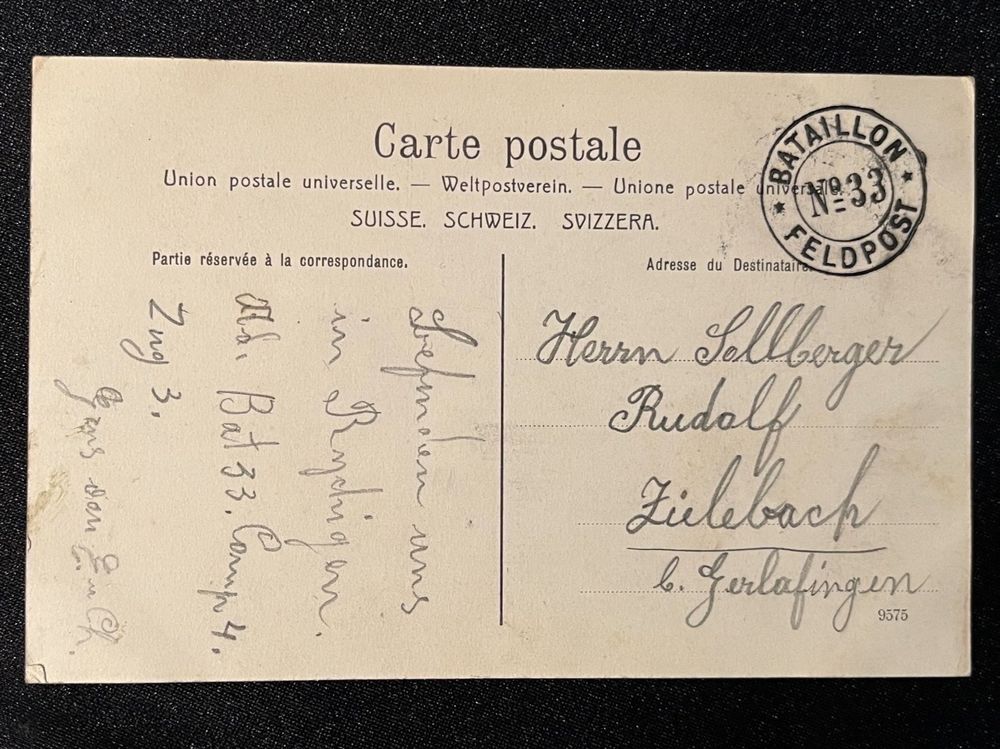 Carte postale
Union postale universelle. — Weltpostverein. — Unione postale universale.
SUISSE. SCHWEIZ. SVIZZERA.
BATAILLON
No 33
FELDPOST
Partie réservée à la correspondance.
Adresse du Destinataire.
Befinden uns
in
Bat 33. Comp 4.
Zug 3.
von
Herrn Sollberger
Rudolf
Zielebach
b. Gerlafingen
9575